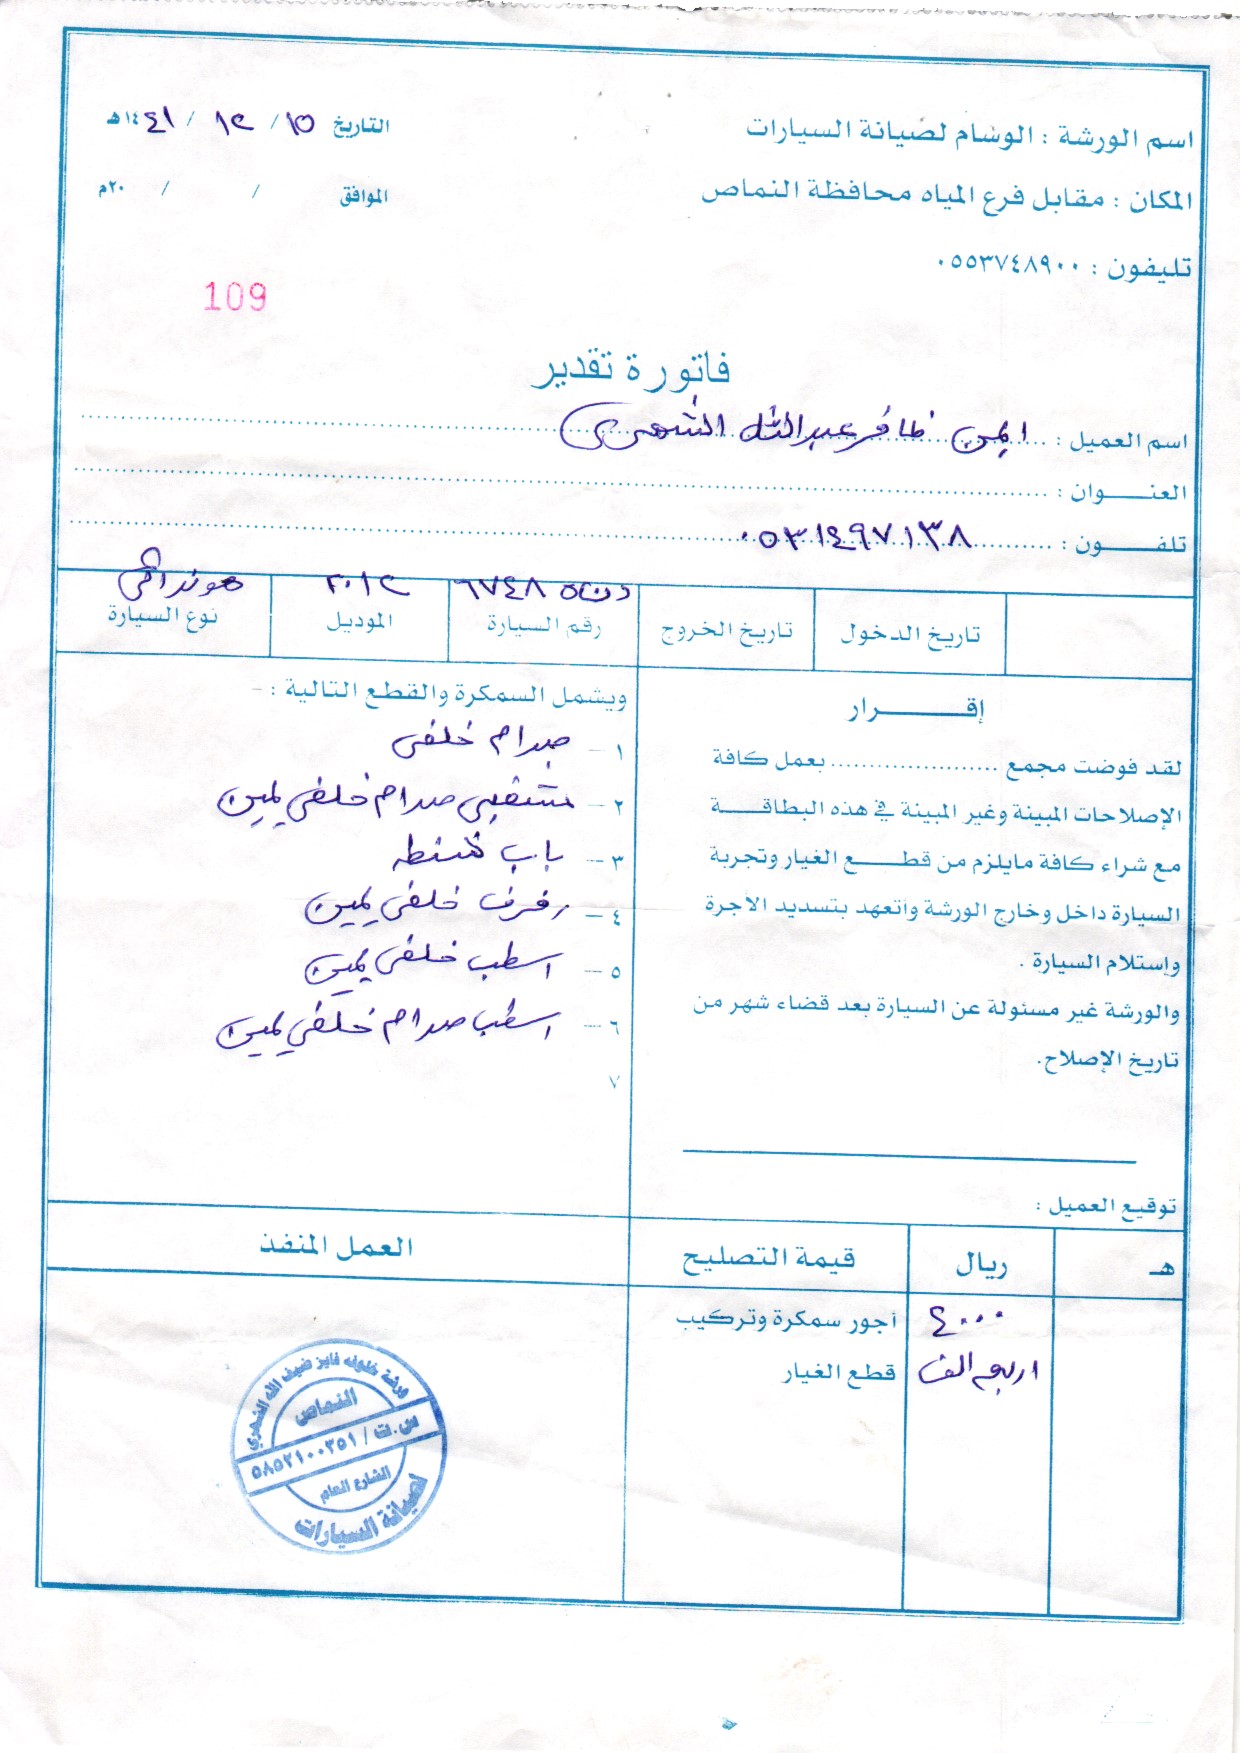 اسم الورشة : الوسام لصيانة السيارات
التاريخ ١٥ / ١٢ / ١٤٤١هـ
المكان : مقابل فرع المياه محافظة النماص
الموافق / / ٢٠م
تليفون : ٠٥٥٣٧٤٨٩٠٠
109
فاتورة تقدير
اسم العميل : ايمن ظافر عبدالله الشهري
العنـــوان :
تلفـــون : ٠٥٣١٤٩٧١٣٨
تاريخ الدخول
تاريخ الخروج
رقم السيارة ٦٧٤٨
الموديل ٢٠١٢
نوع السيارة هوندا
إقـــــرار
لقد فوضت مجمع .................... بعمل كافة
الإصلاحات المبينة وغير المبينة في هذه البطاقـــة
مع شراء كافة مايلزم من قطـــع الغيار وتجربة
السيارة داخل وخارج الورشة واتعهد بتسديد الاجرة
وإستلام السيارة .
والورشة غير مسئولة عن السيارة بعد قضاء شهر من
تاريخ الإصلاح.
توقيع العميل :
ويشمل السمكرة والقطع التالية :-
١ – صدام خلفي
٢ – صدام خلفي يمين
٣ – باب شنطه
٤ – رفرف خلفي يمين
٥ – اسطب خلفي يمين
٦ – اسطب صدام خلفي يمين
٧
هـ
ريال
قيمة التصليح
العمل المنفذ
أجور سمكرة وتركيب ٤٠٠٠
قطع الغيار اربعه الف
ورشة خلوفه فايز ضيف الله الشهري
النماص
س.ت / ٥٨٥٢١٠٠٢٥١
الشارع العام
لصيانة السيارات